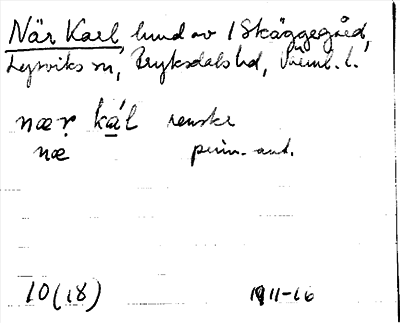 När Karl, hmd av 1 Skäggegård,
Lysviks sn, Fryksdals hd, Värml. l.
næṛ ká̱l renskr
næ prim. ant.
10(18) 1911-16